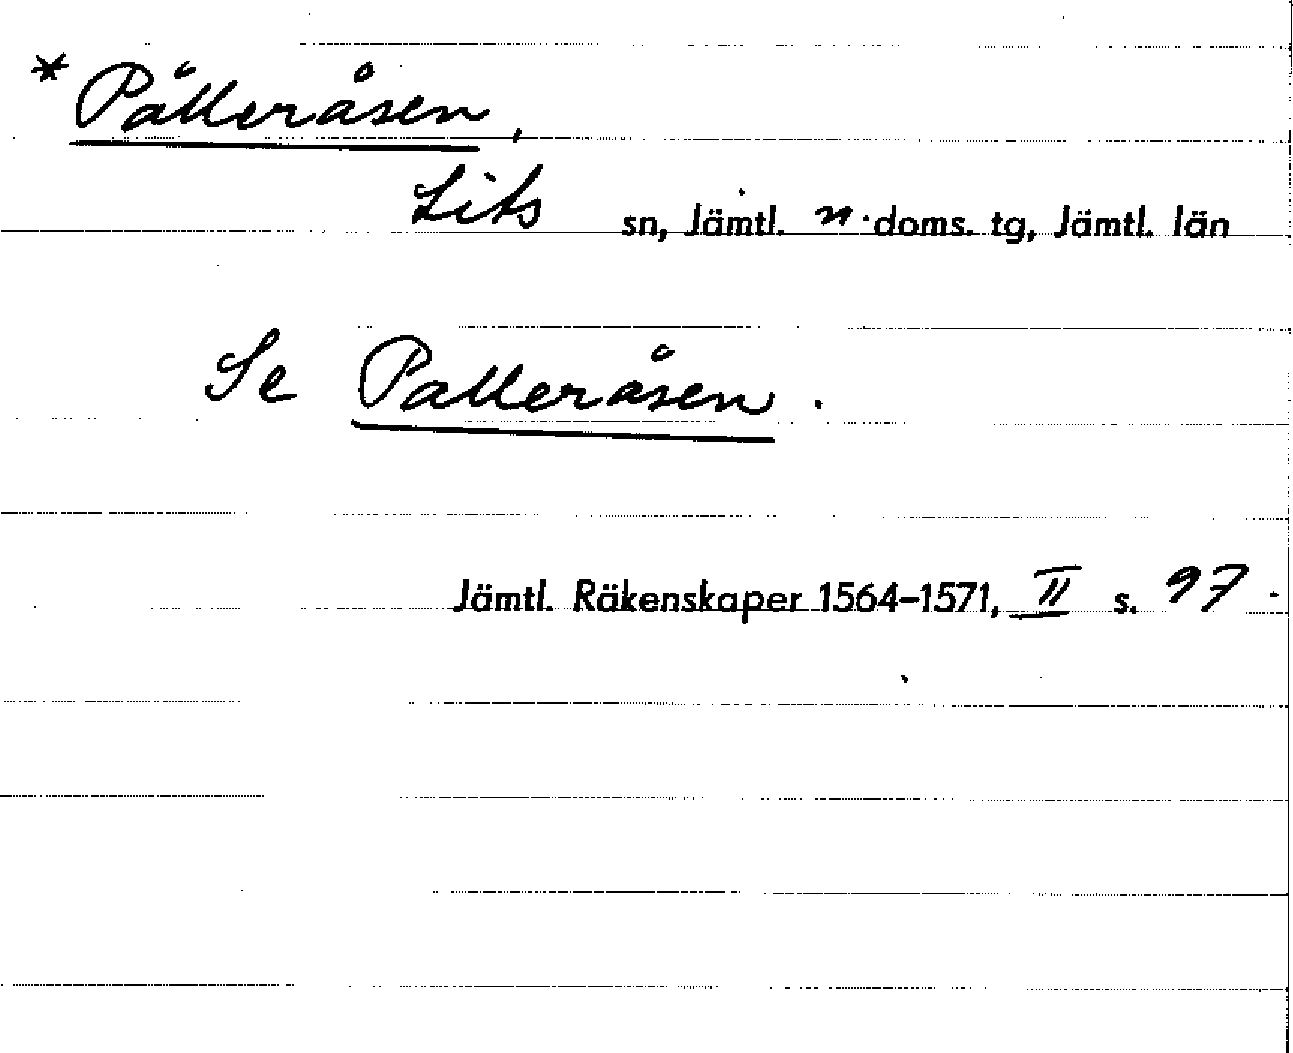 * Pålleråsen,
Lits sn, Jämtl. n. doms. tg, Jämtl. län
Se Palleråsen.
Jämtl. Räkenskaper 1564-1571, II s. 97.